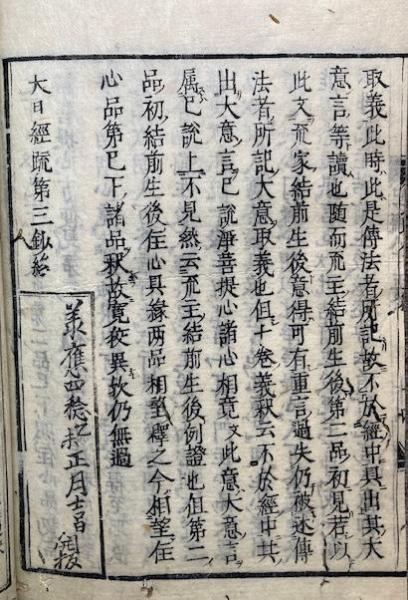 取義此時此是傳法者所記故不於經中具出其大
意言等讀也隨而疏主結前生後第二品初見若以
此文疏家結前生後意得可有重言過失仍破述傳
法者所記大意取義也但十卷義釈云不於經中其
出大意言已說淨菩提心諸心相竟文此意大意言
属已說上不見然云疏主結前生後例證也但第二
品初結前生後住心具緣两品相望釋之今相望住
心品第已下諸品釈故覽彼異故仍無過
大日經疏第三鈔終
承應四稔乙未正月吉日 開板